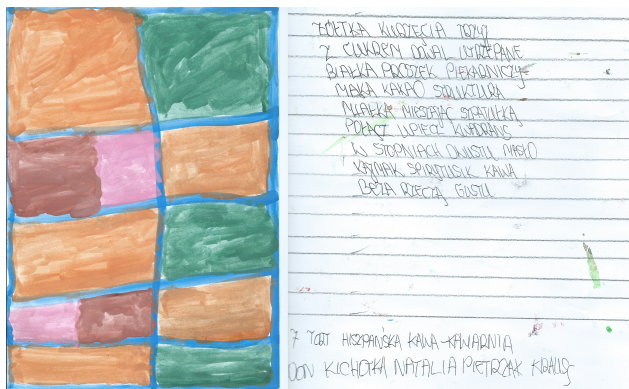 ŻÓŁTKA KURZĘCIA TRZY
Z CUKREM DODAJ UTRZEPANE
BIAŁKA PROSZEK PIEKARNICZY
MĄKA KAKAO STRUKTURA
MIAŁKA MIESZAĆ SZPATUŁKĄ
POŁĄCZ UPIECZ KWADRANS
W STOPNIACH DWUSTU MASŁO
KAJMAK SPIRYTUSIK KAWA
BEZA RZECZĄ GUSTU
7 TORT HISZPAŃSKA KAWA-KAWARNIA
DON KICHOTKA NATALIA PIETRZAK KRAUS